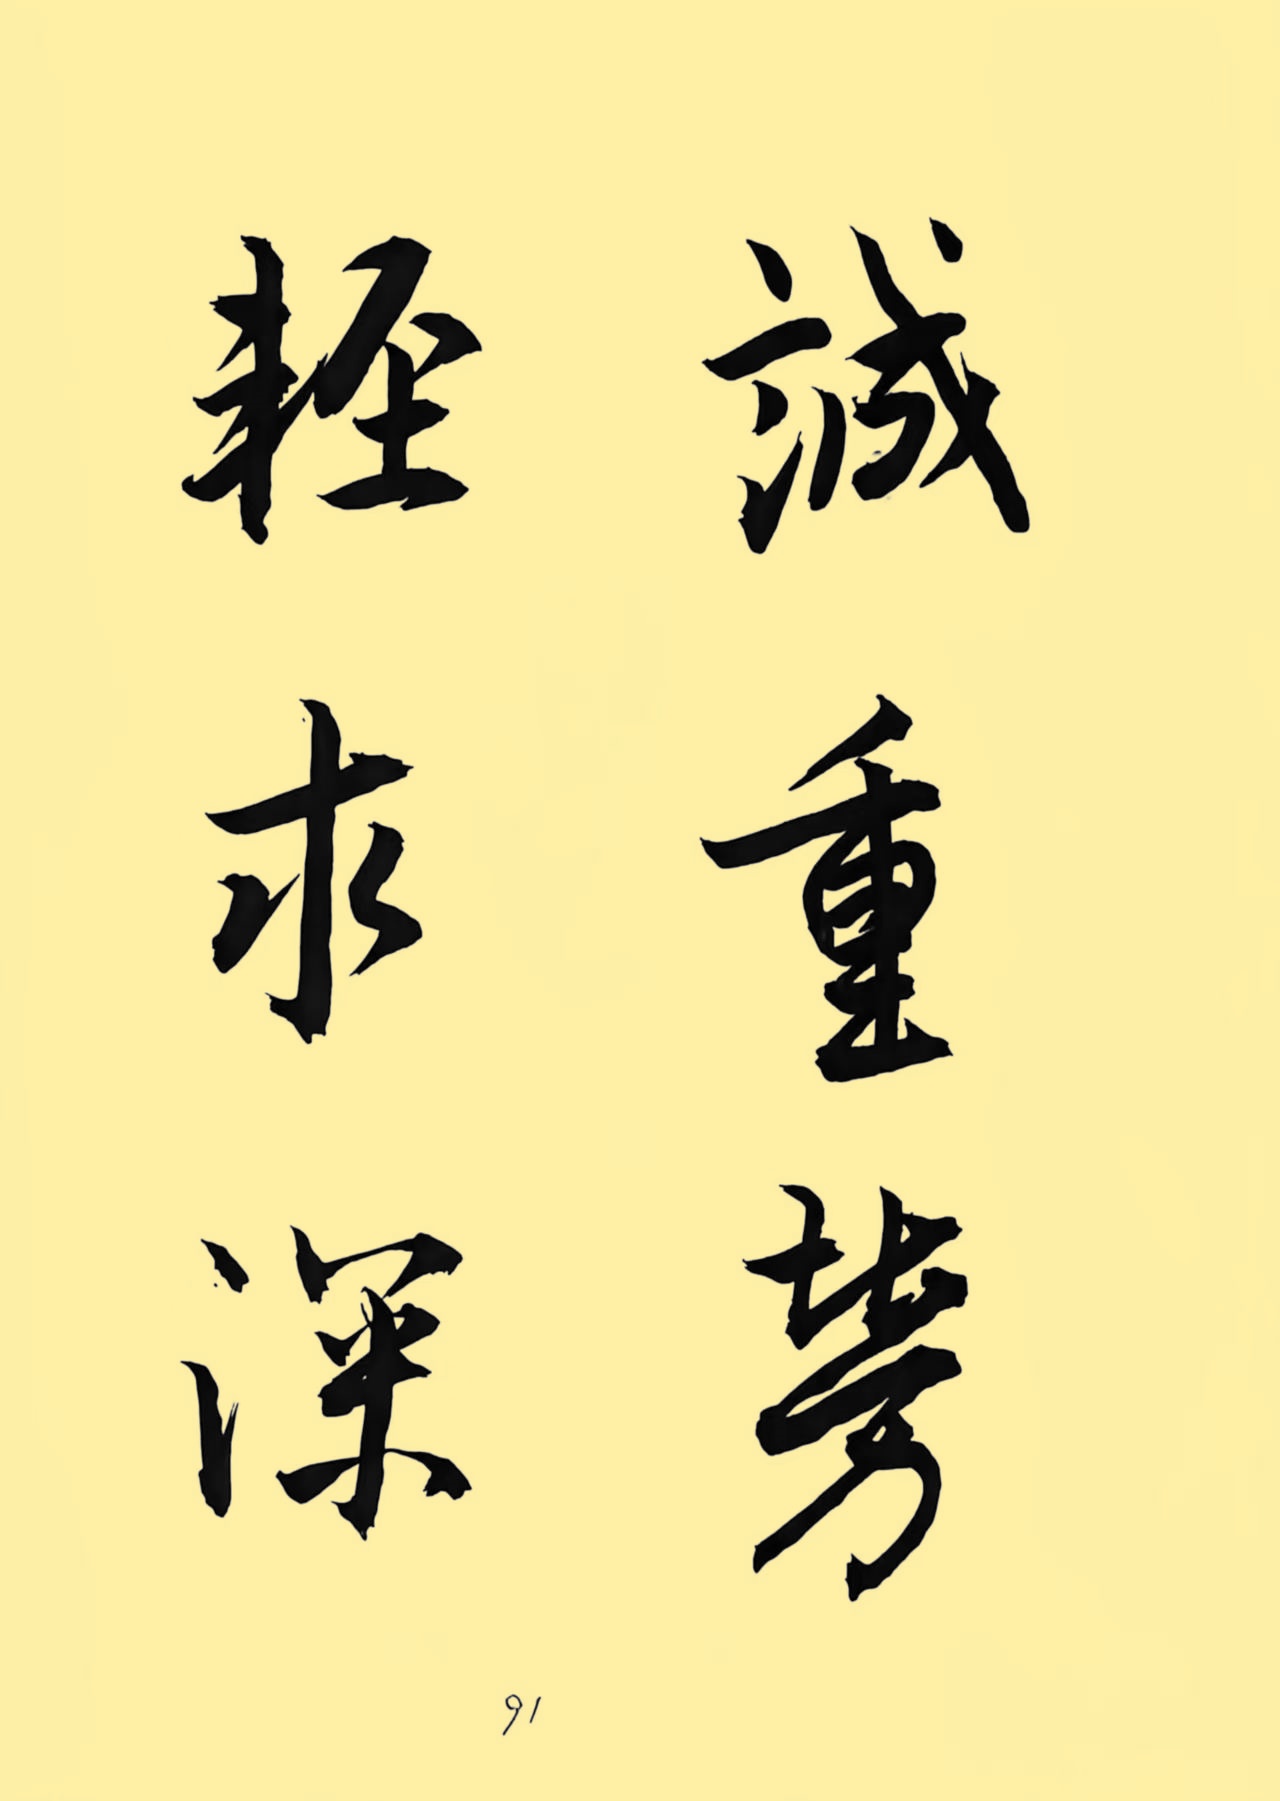 誠重勞
輕求深
91